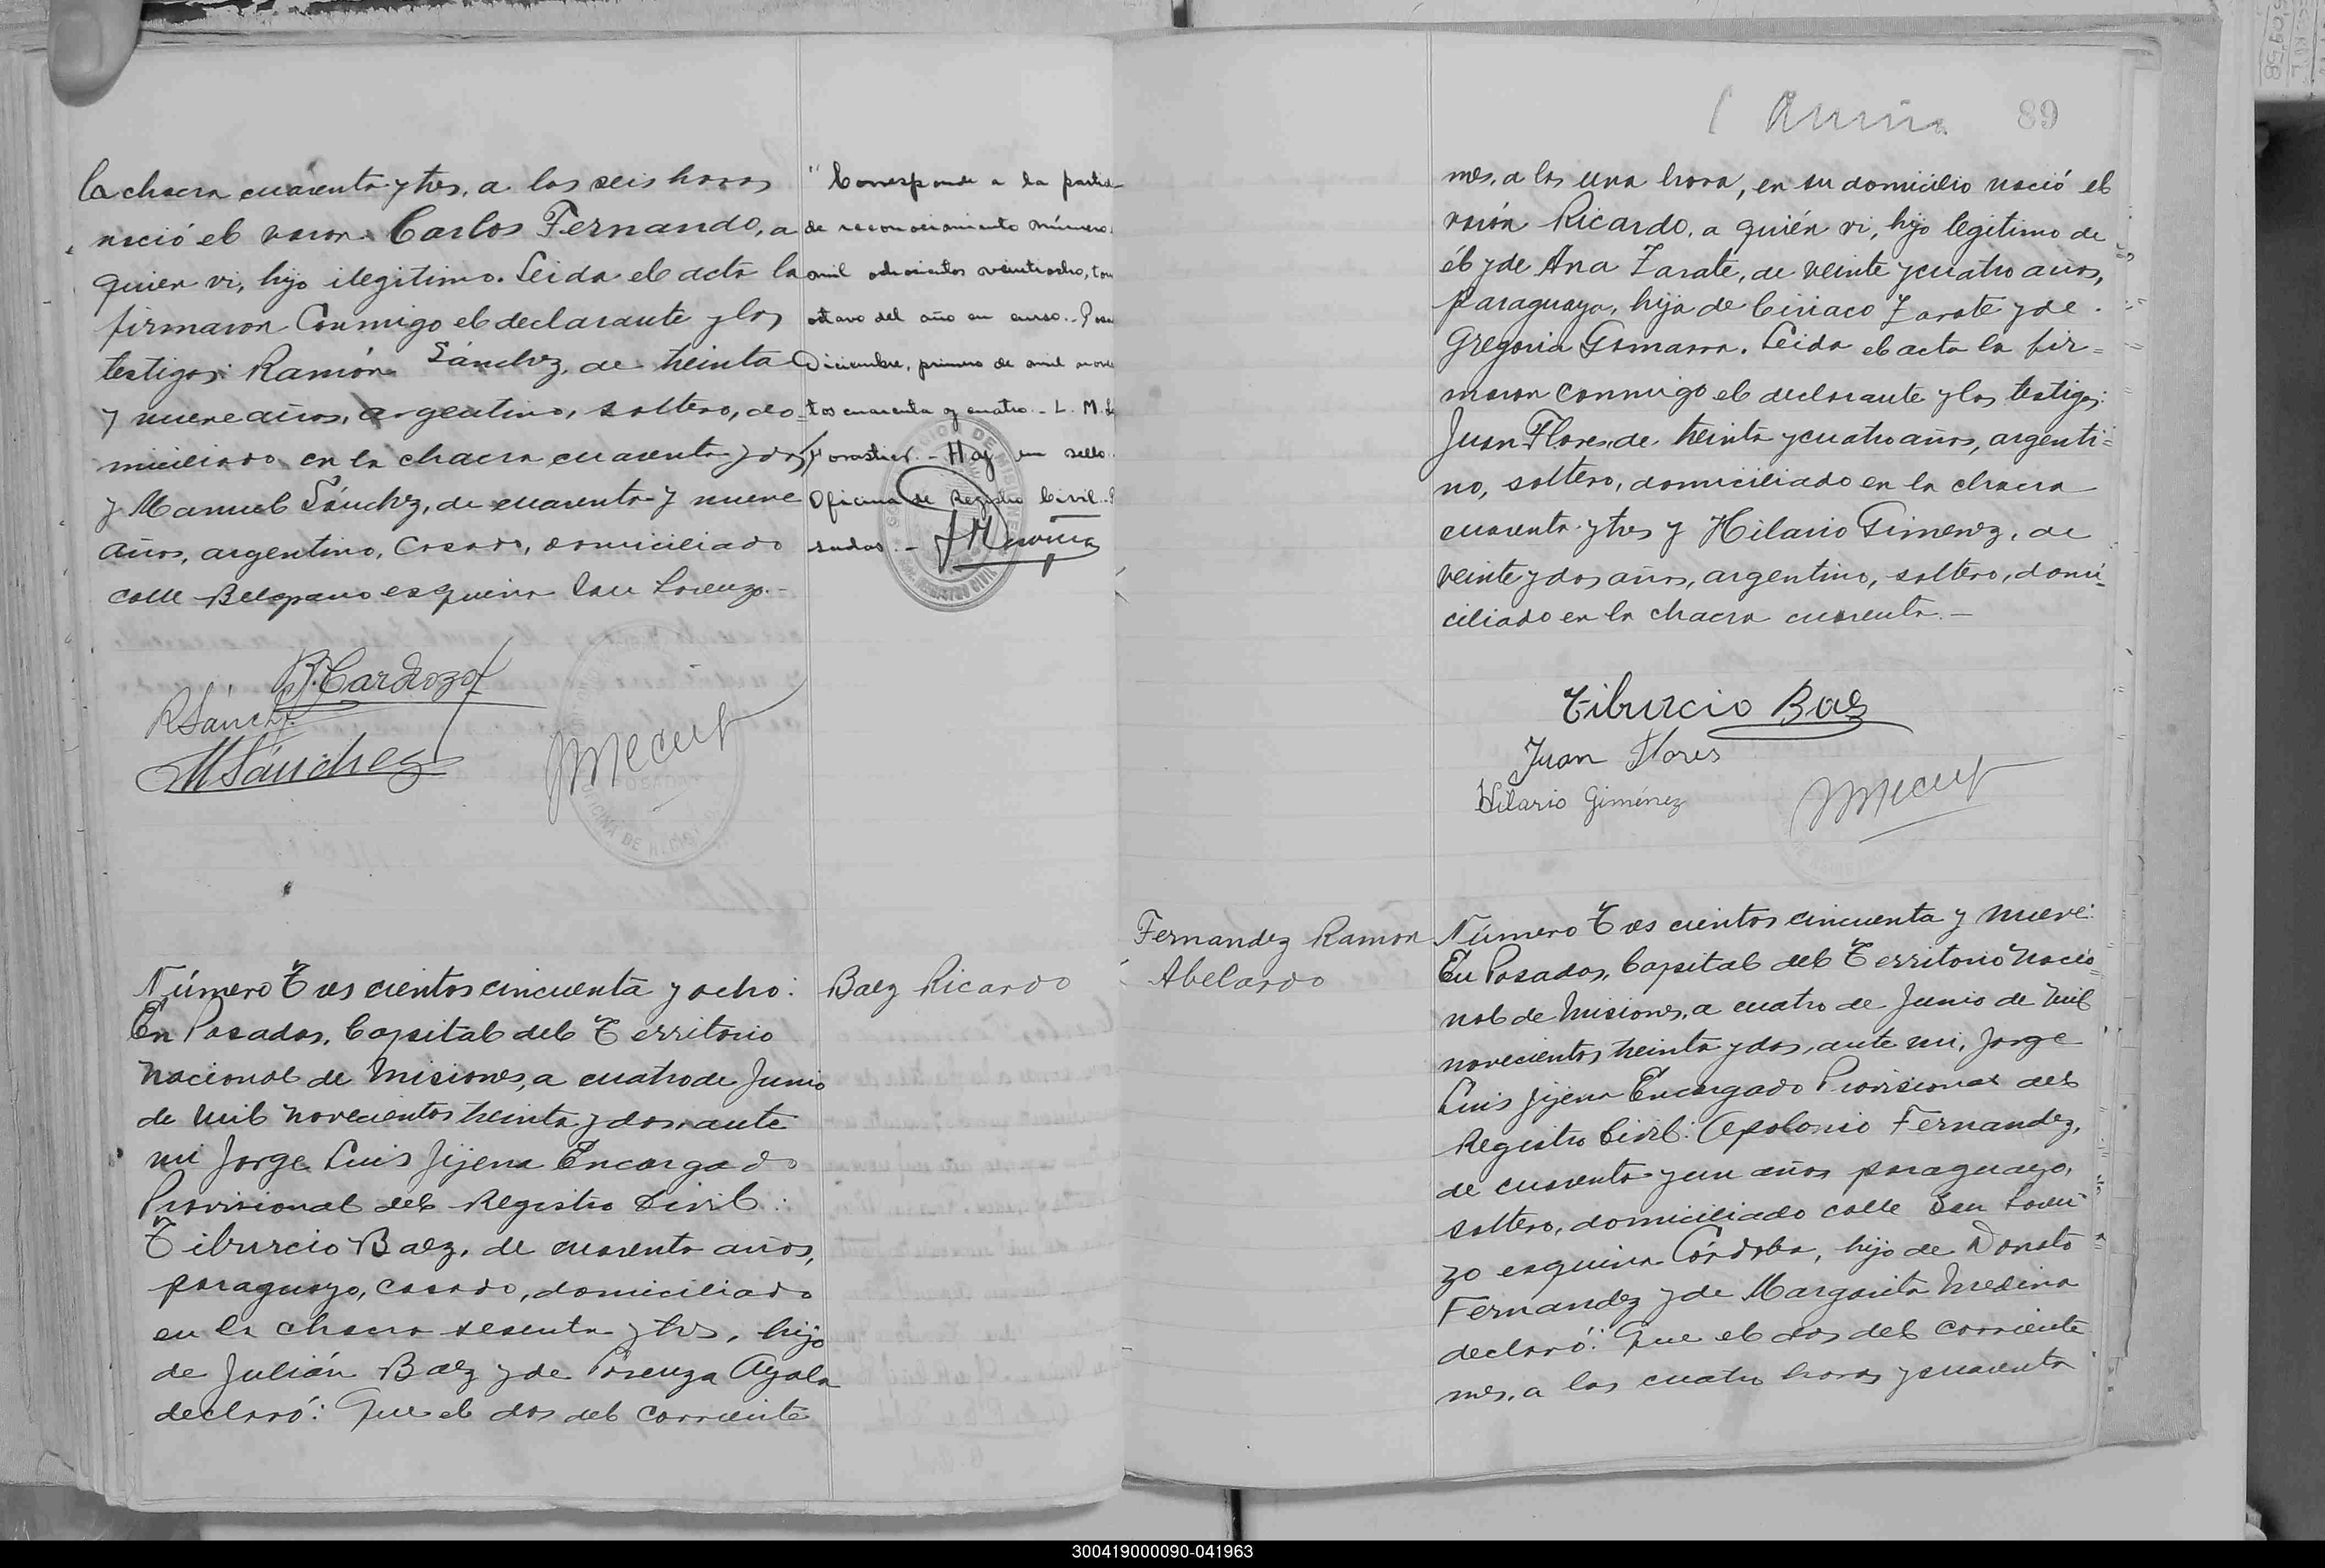 la chacra cuarenta y tres, a las seis horas
nació el varon Carlos Fernando, a
quien vi, hijo ilegitimo. Leida el acta la
firmaron Conmigo el declarante y los
testigos: Ramón Sánchez, de treinta
y nueve años, argentino, soltero, do=
miciliado en la chacra cuarenta y dos
y Manuel Sánchez, de cuarenta y nueve
años, argentino, Casado, domiciliado
calle Belgrano esquina San Lorenzo.-
B. Cardozo
RSánchz
MSánchez
POSADAS
OFICINA DE
"Corresponde a la partid
de reconocimiento número
mil ochocientos veintiocho, tom
octavo del año en curso.- Posa
Diciembre, primero de mil nove
tos cuarenta y cuatro.- L. M.
Forastier.- Hay un sello
Oficina de Registro Civil. P
sadas.-
Número Tres cientos cincuenta y ocho:
En Posadas, Capital del Territorio
Nacional de Misiones, a cuatro de Junio
de Mil Novecientos treinta y dos, ante
mi Jorge Luis Jijena Encargado
Provisional del Registro Civil:
Tiburcio Baez, de cuarenta años,
paraguayo, casado, domiciliado
en la chacra sesenta y tres, hijo
de Julián Baez y de Lorenza Ayala
declaró: Que el dos del corriente
Baez Ricardo
89
mes, a las una hora, en su domicilio nació el
varón Ricardo, a quién vi, hijo legitimo de
él y de Ana Zarate, de veinte y cuatro años,
paraguaya, hija de Ciriaco Zarate y de
Gregoria Gamarra. Leida el acta la fir=
maron conmigo el declarante y los testigos:
Juan Flores, de treinta y cuatro años, argenti=
no, soltero, domiciliado en la chacra
cuarenta y tres y Hilario Gimenez, de
veinte y dos años, argentino, soltero, domi=
ciliado en la chacra cuarenta.-
Tiburcio Baez
Juan Flores
Hilario Giménez
Fernandez Ramon
Abelardo
Número Tres cientos cincuenta y nueve:
En Posadas, Capital del Territorio Nacio=
nal de Misiones, a cuatro de Junio de Mil
novecientos treinta y dos, ante mi, Jorge
Luis Jijena Encargado Provisional del
Registro Civil: Apolonio Fernandez,
de cuarenta y un años paraguayo,
soltero, domiciliado calle San Loren=
zo esquina Córdoba, hijo de Donato
Fernandez y de Margarita Medina
declaró: Que el dos del corriente
mes, a las cuatro horas y cuarenta
300419000090-041963